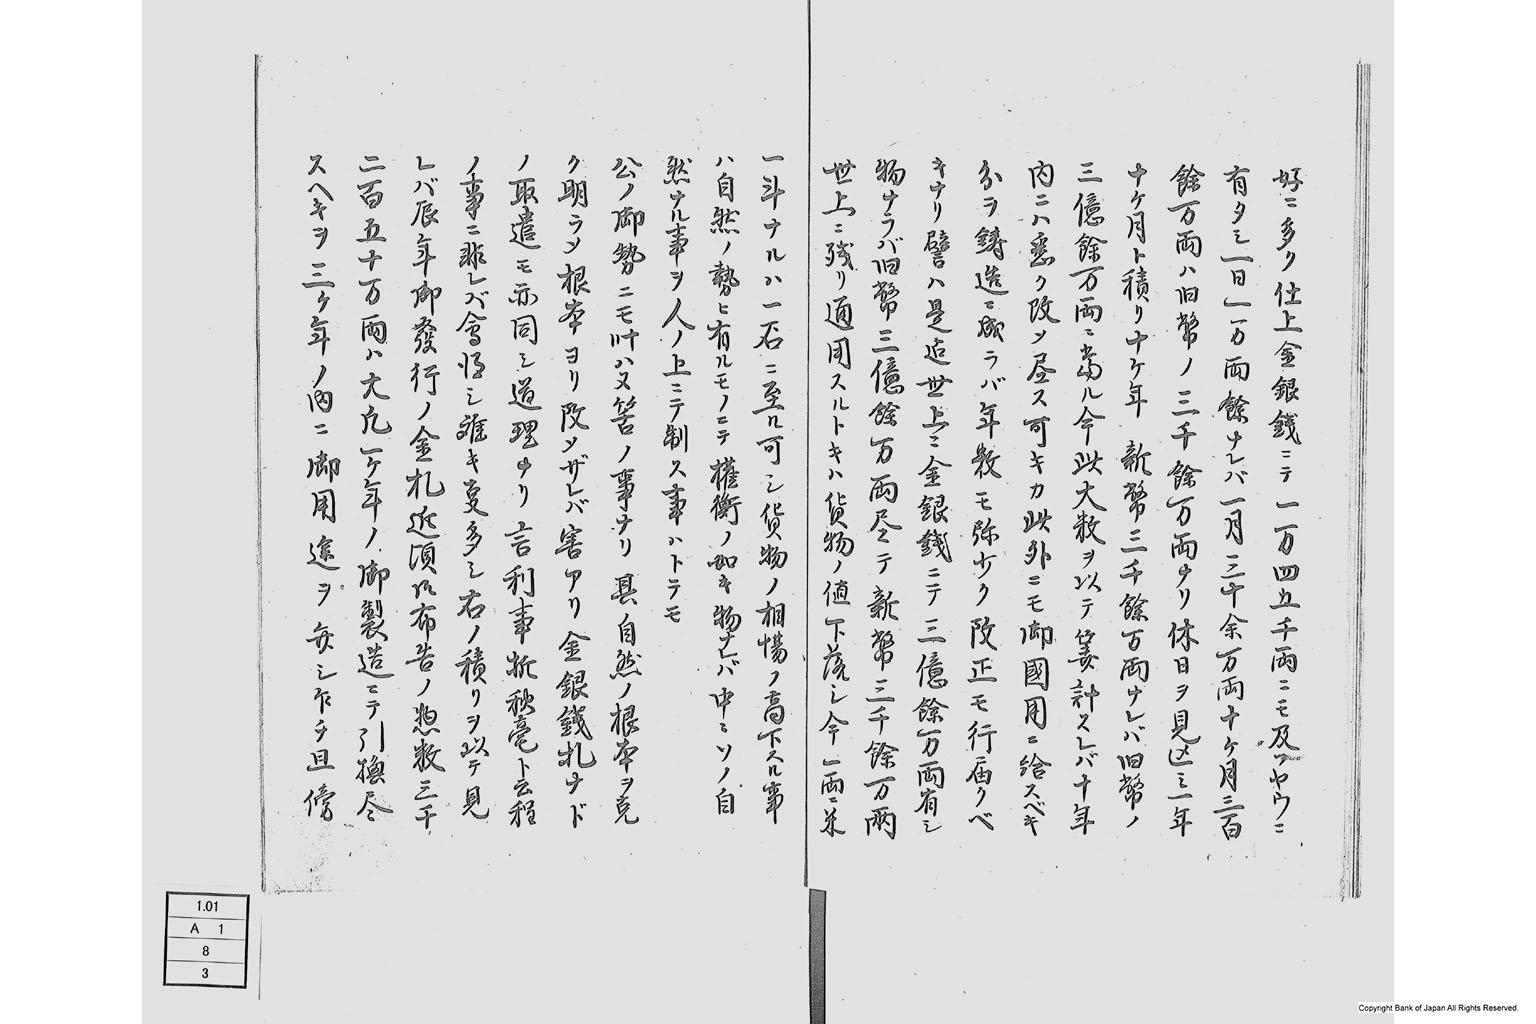 好ニ多ク仕上金銀銭ニテ一万四五千両ニモ及ツヤウニ
有タシ一日一万両餘ナレバ一月三十余万両十ケ月三百
餘万両ハ旧幣ノ三千餘万両ナリ休日ヲ見込ミ一年
十ケ月ト積リ十ケ年新幣三千餘万両ナレバ旧幣ノ
三億餘万両ニ當ル今此大数ヲ以テ筭計スレバ十年
内ニハ悉ク改メ尽ス可キカ此外ニモ御國用ニ給スベキ
分ヲ鋳造ニ成ラバ年数モ弥少ク改正モ行届クベ
キナリ譬ハ是迄世上ニ金銀銭ニテ三億餘万両有シ
物ナラバ旧幣三億餘万両尽テ新幣三千餘万両
世上ニ残リ通用スルトキハ貨物ノ値下落シ今一両ニ米
一斗ナルハ一石ニ至ル可シ貨物ノ相場ノ高下スル事
ハ自然ノ勢ヒ有ルモノニテ權衡ノ如キ物ナレバ中ニソノ自
然ナル事ヲ人ノ上ニテ制ス事ハトテモ
公ノ御勢ニモ叶ハヌ筈ノ事ナリ具自然ノ根本ヲ克
ク明ラメ根本ヨリ改メザレバ害アリ金銀銭札ナド
ノ取遣モ亦同シ道理ナリ言利事析秋毫ト云程
ノ事ニ非レバ會得シ難キ事多シ右ノ積リヲ以テ見
レバ辰年御發行ノ金札近頃御布告ノ惣数三千
二百五十万両ハ大凡一ケ年ノ御製造ニテ引換尽
スヘキヲ三ケ年ノ内ニ御用途ヲ弁シ乍ラ且傍
1.01
A 1
8
3
Copyright Bank of Japan All Rights Reserved.